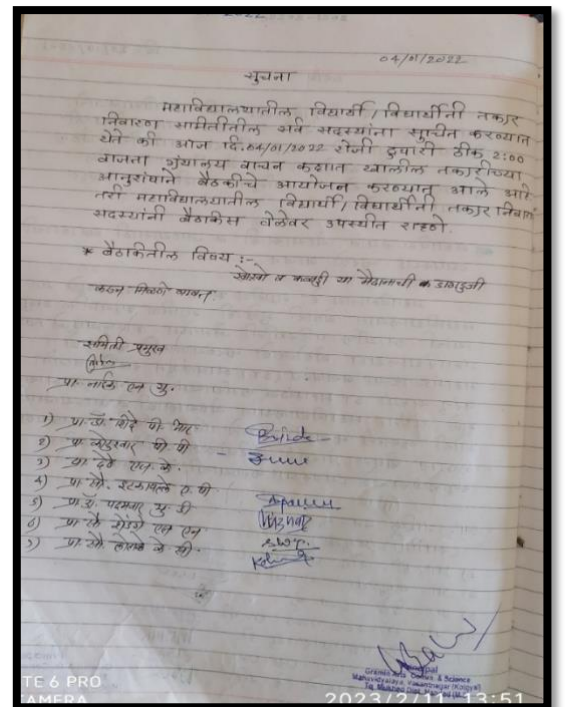 04/01/2022
सुचना
महाविद्यालयातील विद्यार्थी / विद्यार्थीनी तक्रार
निवारण समितीतील सर्व सदस्यांना सूचीत करण्यात
येते की आज दि.04/01/2022 रोजी दुपारी ठीक 2:00
वाजता ग्रंथालय वाचन कक्षात खालील तक्रारीच्या
आनुशंघाने बैठकीचे आयोजन करण्यात आले आहे
तरी महाविद्यालयातील विद्यार्थी / विद्यार्थीनी तक्रार
सदस्यांनी बैठकिस वेळेवर उपस्थीत राहणे.
* बैठकितील विषय :-
खोखो व कबड्डी या मैदानाची डागडुजी
करुन मिळणे बाबत
समिती प्रमुख
प्रा. नाईक एन यु.
1) प्रा. डॉ. शिंदे पी आर
2) प्रा. पी पी
3) प्रा. एल. के.
4) प्रा. सौ. ए पी
5) प्रा. डॉ. यु डी
6) प्रा. एल एन
7) प्रा. सौ. के सी
Gramin Arts Comm. & Science
Mahavidyalaya, Vasantnagar (Kotgyal)
TE 6 PRO
CAMERA
2023/2/11 13:51